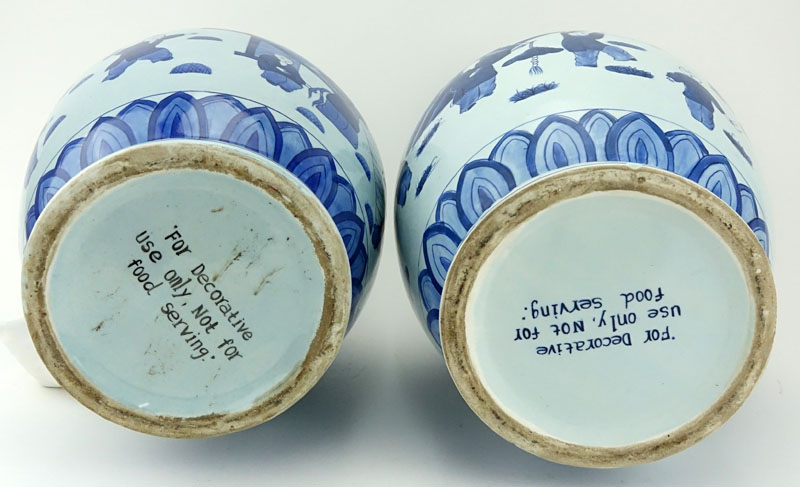 "For Decorative
use only, Not for
food serving."
"For Decorative
use only, Not for
food serving."